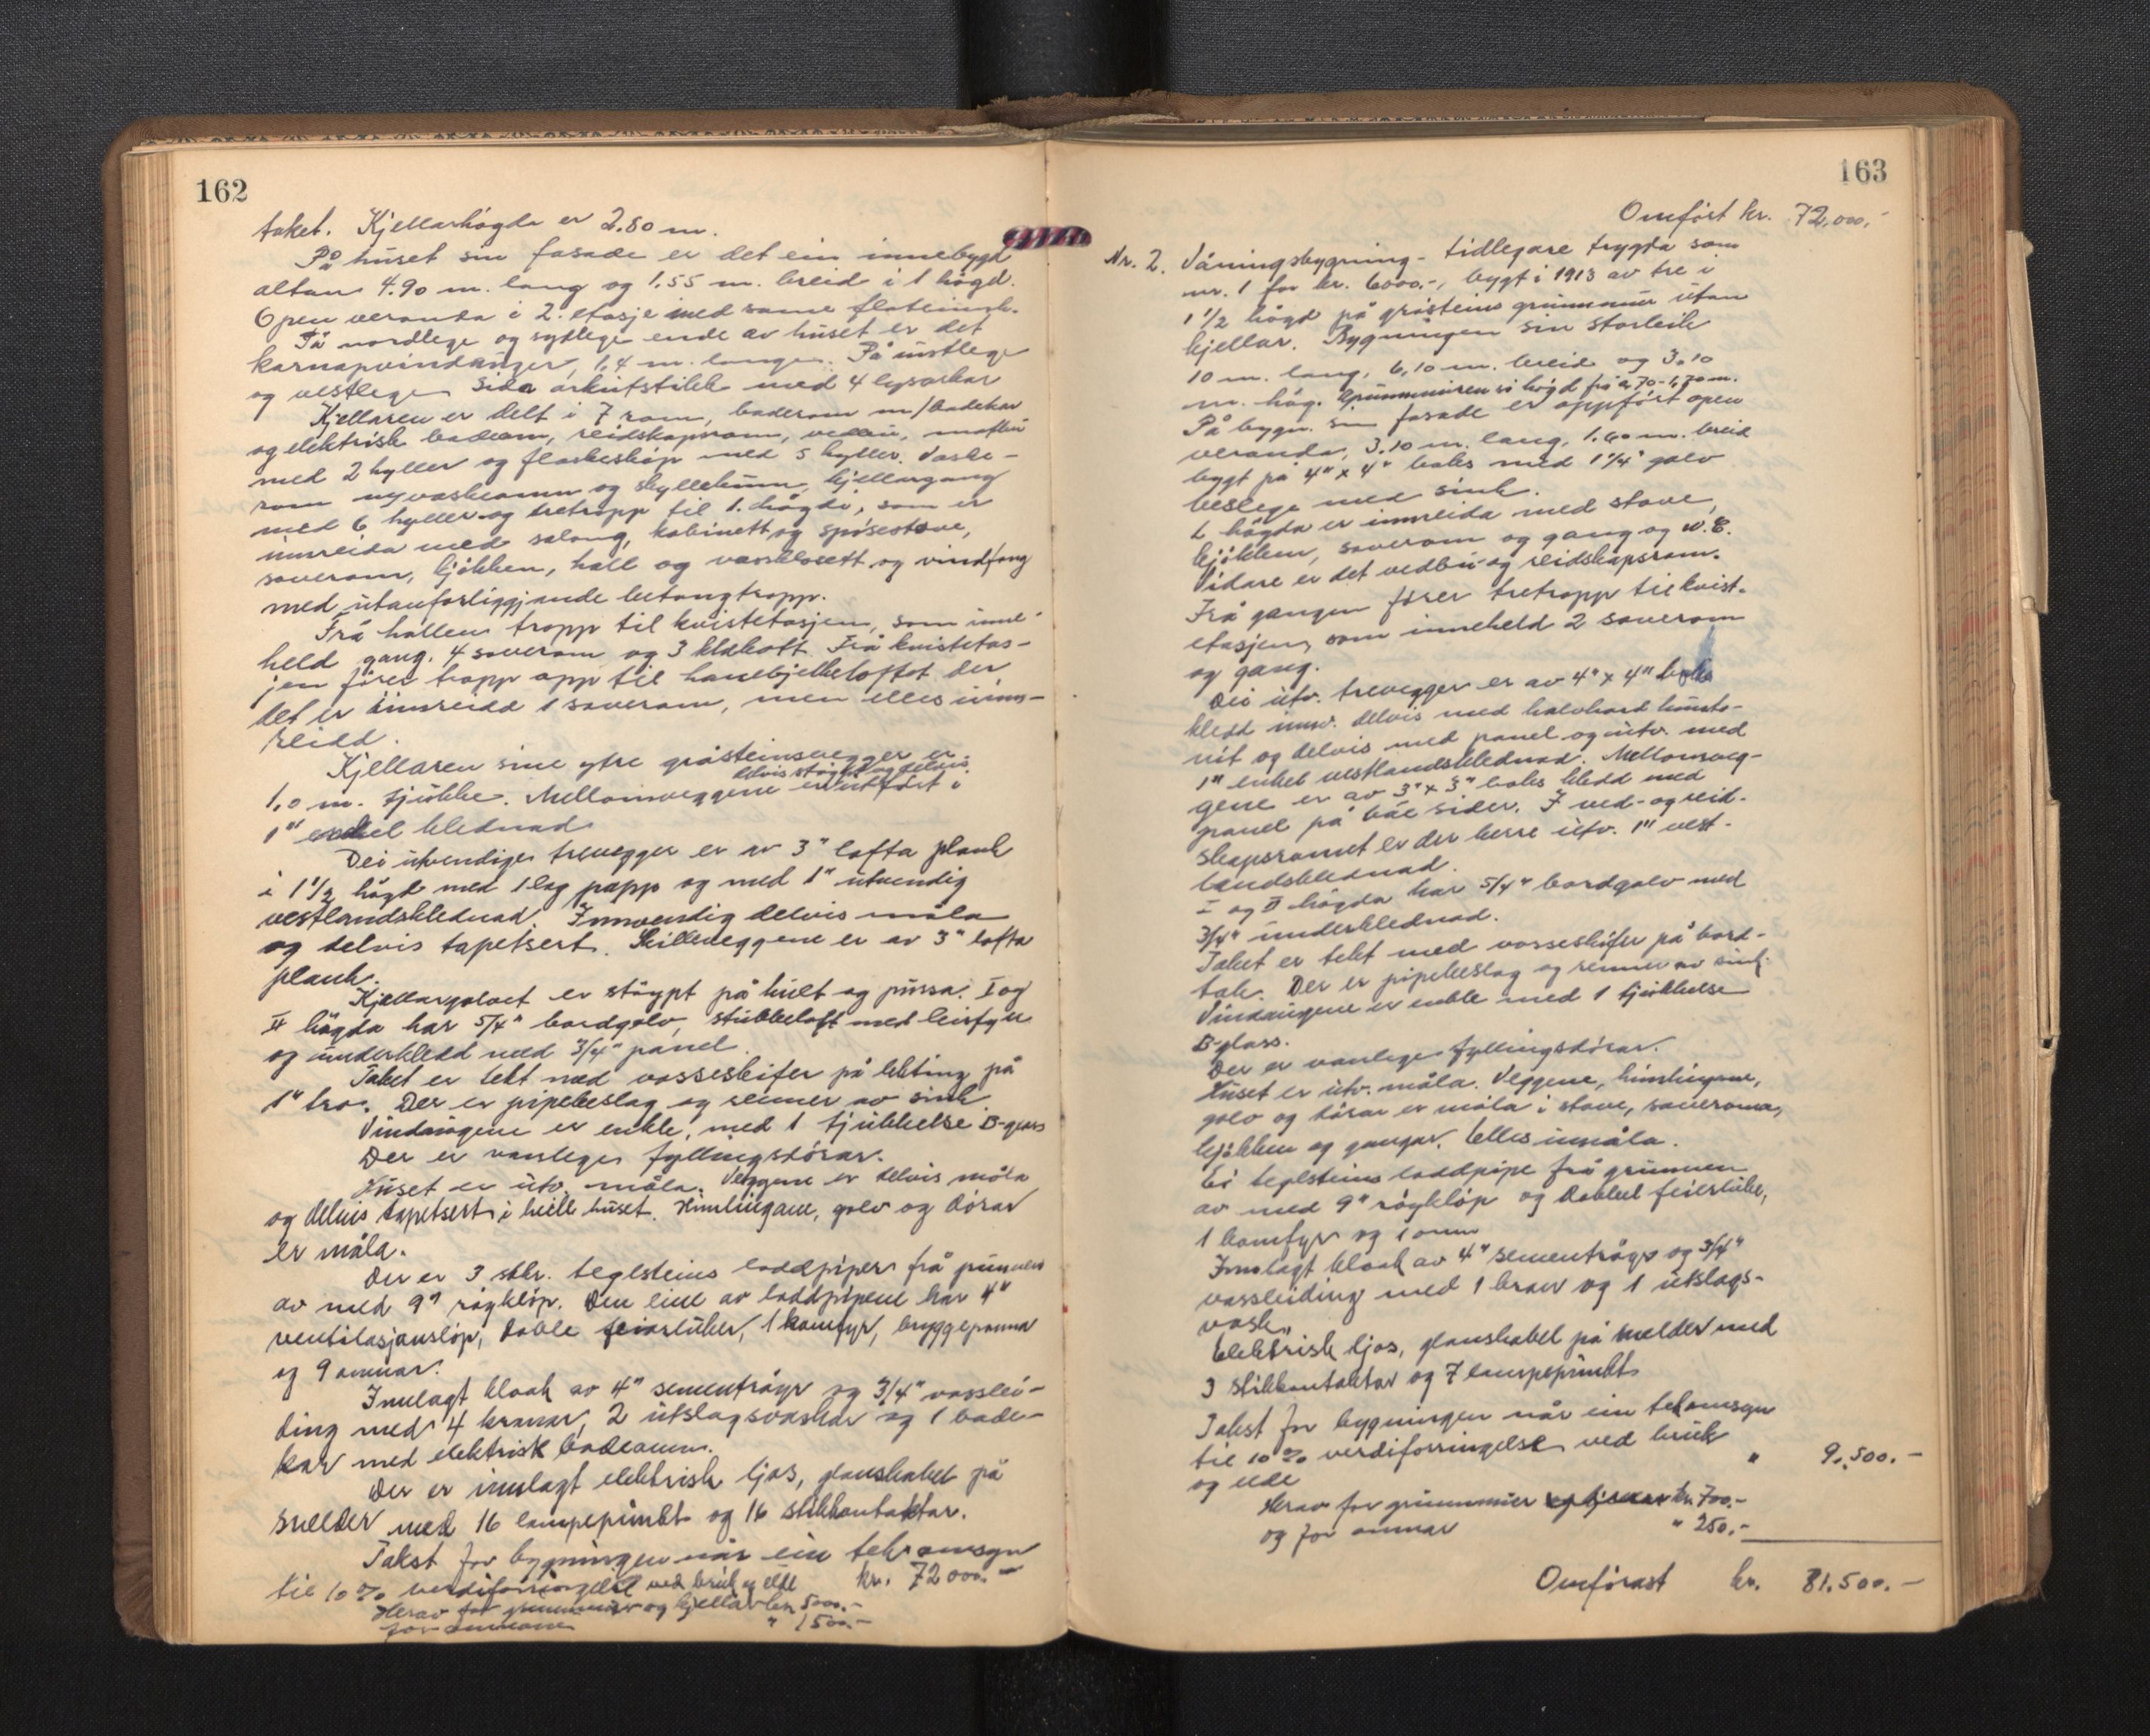 162
taket. Kjellarhögda er 2.80 m.
På huset sin fasade er det ein innebygd
altan 4.90 m. lang og 1.55 m. breid i 1 högd.
Open veranda i 2. etasje med same
På nordlege og sydlege ende av huset er det
karnapvindauger, 1,4 m. lange. På austlege
og vestlege side arkutstikk med 4 lysarkar
Kjellaren er delt i 7 rom, baderom m/badekar
og elektrisk badeomn, reidskapsrom, vedbu, matbu
med 2 hyller og flaskeskåp med 5 hyller. Vaske-
rom m/vaskeomn og skyllekum, kjellargang
med 6 hyller og tretropp til 1. högdi, som er
innreida med salong, kabinett og spisestove,
soverom, kjökken, hall og vassklosett og vindfang
med utanforliggjande betongtropp.
Frå hallen tropp til kvistetasjen, som inne-
held gang, 4 soverom og 3 klekott. Frå kvistetas-
jen förer tropp opp til hanebjelkeloftet der
det er innreidd 1 soverom, men elles uinn-
reidd.
Kjellaren sine ytre gråsteinsvegger er
delvis stöypt og delvis
1,0 m. tjukke. Mellomveggene er utfört i
1" enkel klednad
Dei utvendige trevegger er av 3" lafta plank
i 1 1/2 högd med 1 lag papp og med 1" utvendig
vestlandsklednad. Innvendig delvis måla
og delvis tapetsert. Skilleveggene er av 3" lafta
plank.
Kjellargolvet er stöypt på kult og pussa. I og
II högda har 5/4" bordgolv, stubbeloft med leirfyll
og underkledd med 3/4" panel.
Taket er tekt med vosseskifer på lekting på
1" tro. Der er pipebeslag og renner av sink.
Vindaugene er enkle, med 1 tjukkelse B-glass
Der er vanlege fyllingsdörar.
Huset er utv. måla. Veggene er delvis måla
og delvis tapetsert i heile huset. Himlingane, golv og dörar
er måla.
Der er 3 stkr. teglsteins loddpiper frå grunnen
av med 9" röykløp. Den eine av loddpipene har 4"
ventilasjonsløp, doble feiarluker, 1 komfyr, bryggepanna
og 9 omnar.
Innlagt kloak av 4" sementröyr og 3/4" vasslei-
ding med 4 kranar, 2 utslagsvaskar og 1 bade-
kar med elektrisk badeomn.
Der er innlagt elektrisk ljos, glanskabel på
smelder med 16 lampepunkt og 16 stikkontaktar.
Takst for bygningen når ein tek omsyn
til 10 % verdiforringelse ved bruk og elde kr. 72 000.-
Herav for grunnmur og kjellar kr. 5000.-
for omnane " 1500.-
163
Omfört kr. 72,000,-
Nr. 2. Våningsbygning - tidlegare trygda som
nr. 1 for kr. 6000.-, bygt i 1913 av tre i
1 1/2 högd på gråsteins grunnmur utan
kjellar. Bygningen sin storleik
10 m. lang, 6,10 m. breid og 3.10
m. höy. Grunnmuren si högd frå 0,70-1,70 m.
På bygn. sin fasade er oppfört open
veranda, 3.10 m. lang, 1.60 m. breid
bygt på 4" x 4" boks med 1 1/4" golv
beslege med sink.
1. högda er innreida med stove,
kjökken, soverom og gang og W.C.
Vidare er det vedbu og reidskapsrom.
Frå gangen förer tretropp til kvist-
etasjen, som inneheld 2 soverom
og gang.
Dei utv. trevegger er av 4" x 4" boks
kledd innv. delvis med halvhard hunto-
nit og delvis med panel og utv. med
1" enkel vestlandsklednad. Mellomveg-
gene er av 3" x 3" boks kledd med
panel på båe sider. I ved- og reid-
skapsromet er der berre utv. 1" vest-
landsklednad.
I og II högda har 5/4" bordgolv med
3/4" underklednad.
Taket er tekt med vosseskifer på bord-
tak. Der er pipebeslag og renner av sink.
Vindaugene er enkle med 1 tjukkelse
B-glass.
Der er vanlege fyllingsdörar.
Huset er utv. måla. Veggene, himlingane,
golv og dörar er måla i stove, soveroma,
kjökken og gangar. Elles umåla.
Ei teglsteins loddpipe frå grunnen
av med 9" röykløp og dobbel feierluke,
1 komfyr og 1 omn
Innlagt kloak av 4" sementröyr og 3/4"
vassleiding med 1 kran og 1 utslags-
vask.
Elektrisk ljos, glanskabel på smelder med
3 stikkontaktar og 7 lampepunkt.
Takst for bygningen når ein tek omsyn
til 10 % verdiforringelse ved bruk
og elde " 9.500.-
Herav for grunnmur kr. 700.-
og for omnar " 250,-
Omförast kr. 81.500.-